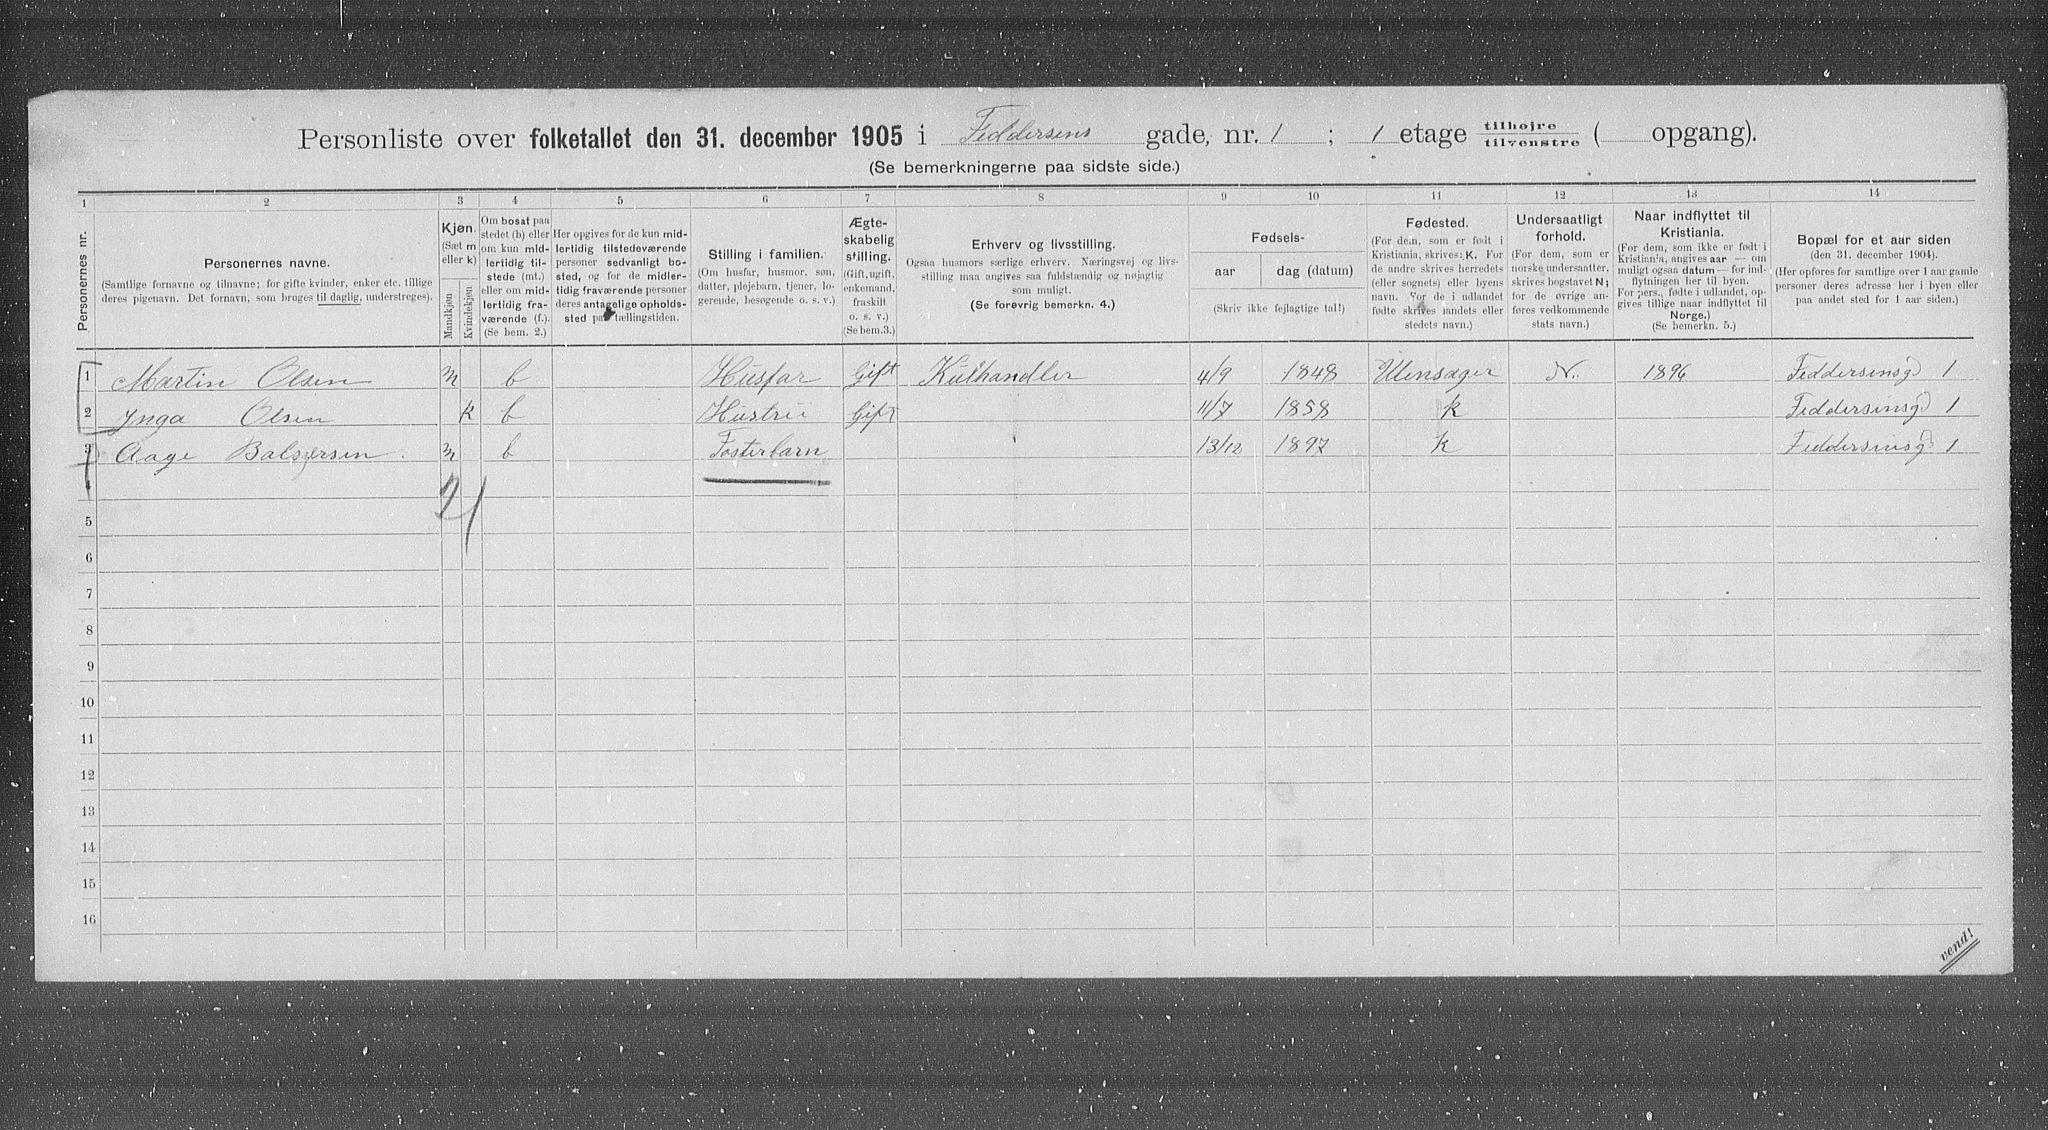 Personliste over folketallet den 31. december 1905 i Feddersens gade, nr. 1 ; 1 etage tilhøjre tilvenstre ( opgang).
(Se bemerkningerne paa sidste side.)
1 2 3 4 5 6 7 8 9 10 11 12 13 14
Personernes nr.
Personernes navne.
(Samtlige fornavne og tilnavne; for gifte kvinder, enker etc. tillige
deres pigenavn. Det fornavn, som bruges til daglig, understreges).
Kjøn.
(Sæt m
eller k)
Mandkjøn
Kvindekjøn
Om bosat paa
stedet (b) eller
om kun mid-
lertidig til-
stede (mt.)
eller om mid-
lertidig fra-
værende (f.).
(Se bem. 2.)
Her opgives for de kun mid-
lertidig tilstedeværende
personer sedvanligt bo-
sted, og for de midler-
tidig fraværende personer
deres antagelige opholds-
sted paa tællingstiden.
Stilling i familien.
(Om husfar, husmor, søn,
datter, plejebarn, tjener, lo-
gerende, besøgende o. s. v.)
Ægte-
skabelig
stilling.
(Gift, ugift,
enkemand,
fraskilt
o. s. v.)
(Se bem.3.)
Erhverv og livsstilling.
Ogsaa husmors særlige erhverv. Næringsvej og livs-
stilling maa angives saa fuldstændig og nøjagtig
som muligt.
(Se forøvrig bemerkn. 4.)
Fødsels-
aar
dag (datum)
(Skriv ikke fejlagtige tal!)
Fødested.
(For dem, som er født i
Kristiania, skrives: K. For
de andre skrives herredets
(eller sognets) eller byens
navn. For de i udlandet
fødte skrives landets eller
stedets navn.)
Undersaatligt
forhold.
(For dem, som er
norske undersaatter,
skrives bogstavet N;
for de øvrige an-
føres vedkommende
stats navn.)
Naar indflyttet til
Kristiania.
(For dem, som ikke er født i
Kristiania, angives aar — om
muligt ogsaa datum — for ind-
flytningen her til byen.
For pers., fødte i udlandet, op-
gives tillige naar indflyttet til
Norge.)
(Se bemerkn. 5.)
Bopæl for et aar siden
(den 31. december 1904).
(Her opføres for samtlige over 1 aar gamle
personer deres adresse her i byen eller
paa andet sted for 1 aar siden.)
1 Martin Olsen m b Husfar Gift Kulhandler 4/9 1848 Ullensager N. 1896 Feddersensgd 1
2 Inga Olsen k b Hustru Gift 11/7 1858 k Feddersensgd 1
3 Aage m b Fosterbarn 13/12 1897 k Feddersensgd 1
2 1
5
6
7
8
9
10
11
12
13
14
15
16
vend!